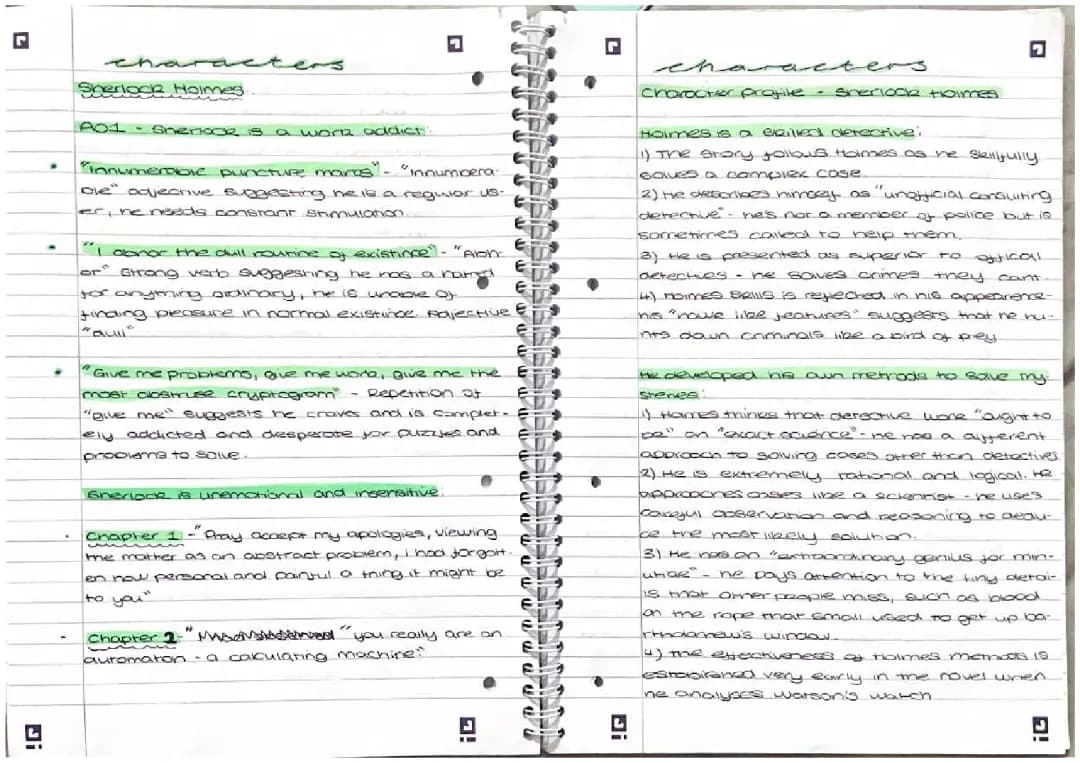 characters
Sherlock Holmes.
AO1 - Sherlock is a work addict:
"innumerable puncture marks" - "innumera-
ble" adjective suggesting he is a regular us-
er, he needs constant stimulation.
"I abhor the dull routine of existence" - "Abh-
or" strong verb suggesting he has a hatred
for anything ordinary, he is unable of
finding pleasure in normal existince. Adjective
"dull"
"Give me problems, give me work, give me the
most abstruse cryptogram" - Repetition of
"give me" suggests he craves and is complet-
ely addicted and desperate for puzzles and
problems to solve.
Sherlock is unemotional and insensitive:
Chapter 1 - "Pray accept my apologies, viewing
the matter as an abstract problem, i had forgott-
en how personal and painful a thing it might be
to you"
Chapter 2 - " "you really are an
automaton - a calculating machine."
characters
Character profile - Sherlock Holmes
Holmes is a skilled detective:
1) The story follows Holmes as he skilfully
solves a complex case.
2) He describes himself as "unofficial consulting
detective" - he's not a member of police but is
sometimes called to help them.
3) He is presented as superior to official
detectives - he solves crimes they cant.
4) Holmes skills is reflected in his appearence-
his "hawk like features" suggests that he hu-
nts down criminals like a bird of prey
He developed his own methods to solve my-
steries:
1) Holmes thinks that detective work "ought to
be" an "exact science" - he has a different
approach to solving cases other than detectives
2) He is extremely rational and logical. He
approaches cases like a scientist - he uses
careful observation and reasoning to dedu-
ce the most likely solution.
3) He has an "extraordinary genius for min-
utiae" - he pays attention to the tiny detai-
ls that other people miss, such as blood
on the rope that small used to get up ba-
rtholomew's window.
4) The effectiveness of Holmes methods is
established very early in the novel when
he analyses Watson's watch